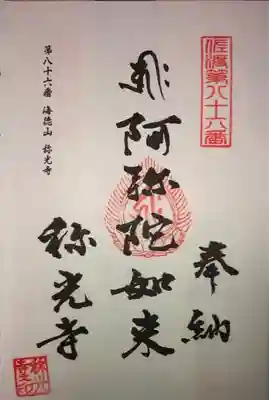 佐渡第八十六番
奉納
阿弥陀如来
弥光寺
第八十六番 海徳山 弥光寺